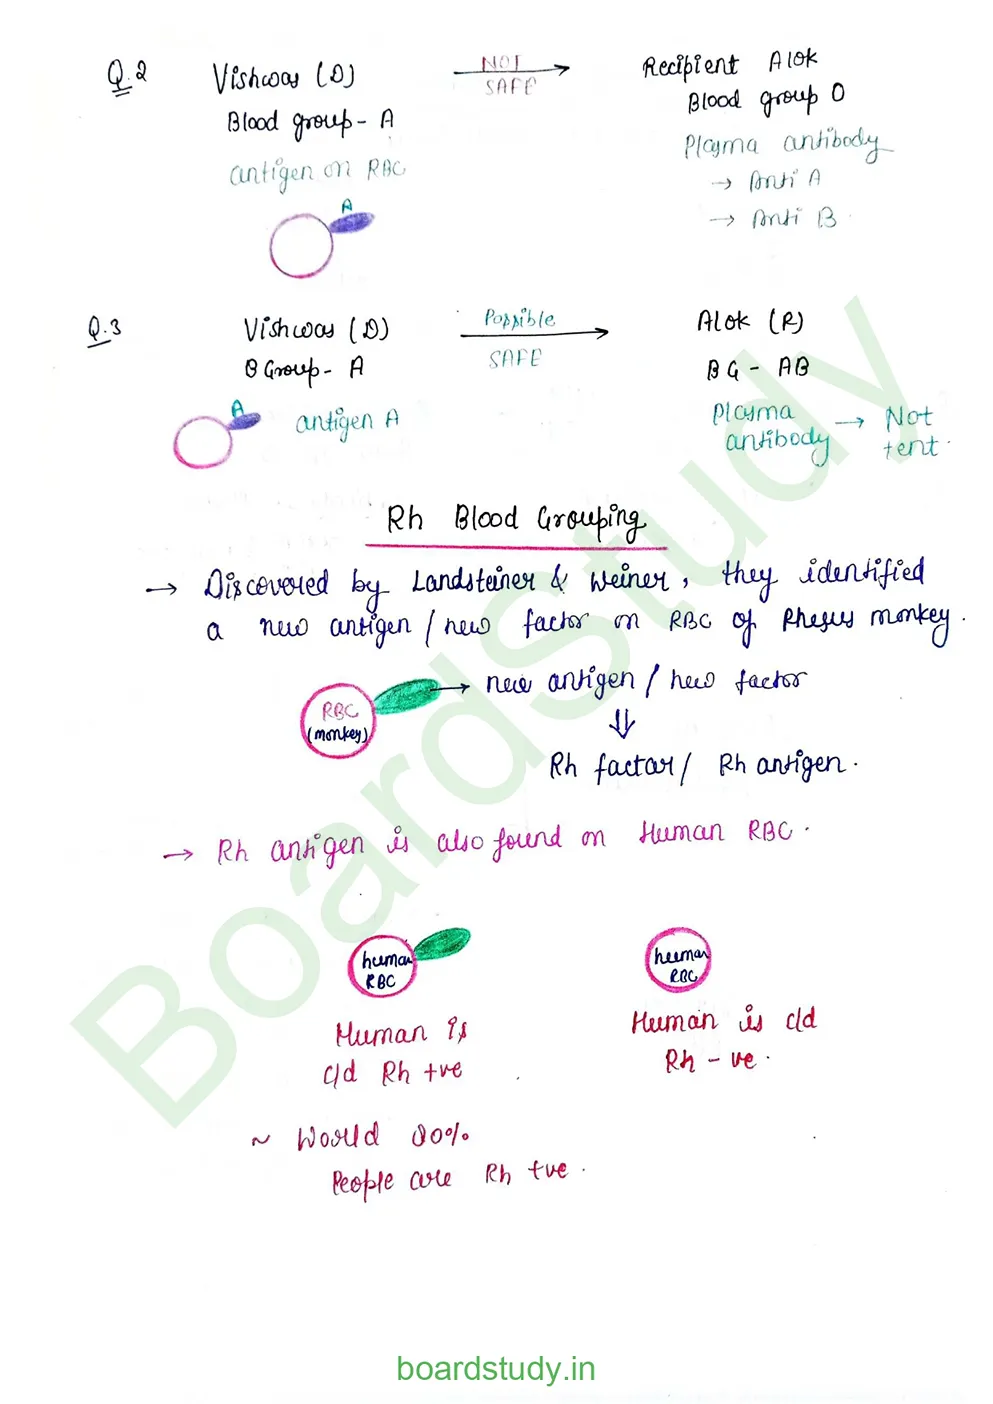 Q.2
Vishwas (D)
NOT
SAFE
Recipient Alok
Blood group - A
Blood group O
antigen on RBC
Plasma antibody
→ Anti A
→ Anti B
A
Q.3
Vishwas (D)
Possible
SAFE
Alok (R)
B Group - A
BG - AB
A
antigen A
Plasma
antibody → Not
tent.
Rh Blood Grouping
→ Discovered by Landsteiner & Weiner, they identified
a new antigen / new factor on RBC of Rhesus monkey.
RBC
(monkey)
→ new antigen / new factor
⇓
Rh factor / Rh antigen.
→ Rh antigen is also found on Human RBC.
human
RBC
human
RBC
Human is
c/d Rh +ve
Human is c/d
Rh -ve.
~ World 80%
People are Rh +ve.
BoardStudy
boardstudy.in